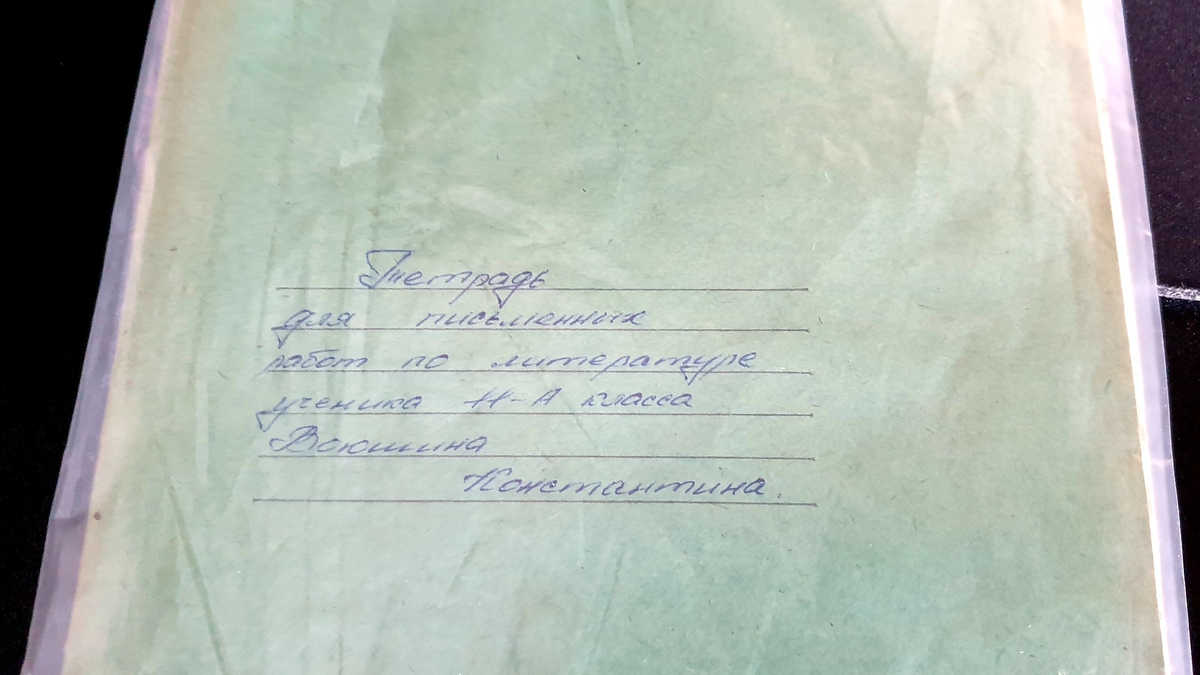 Тетрадь
для письменных
работ по литературе
ученика 11-А класса
Воюшина
Константина.